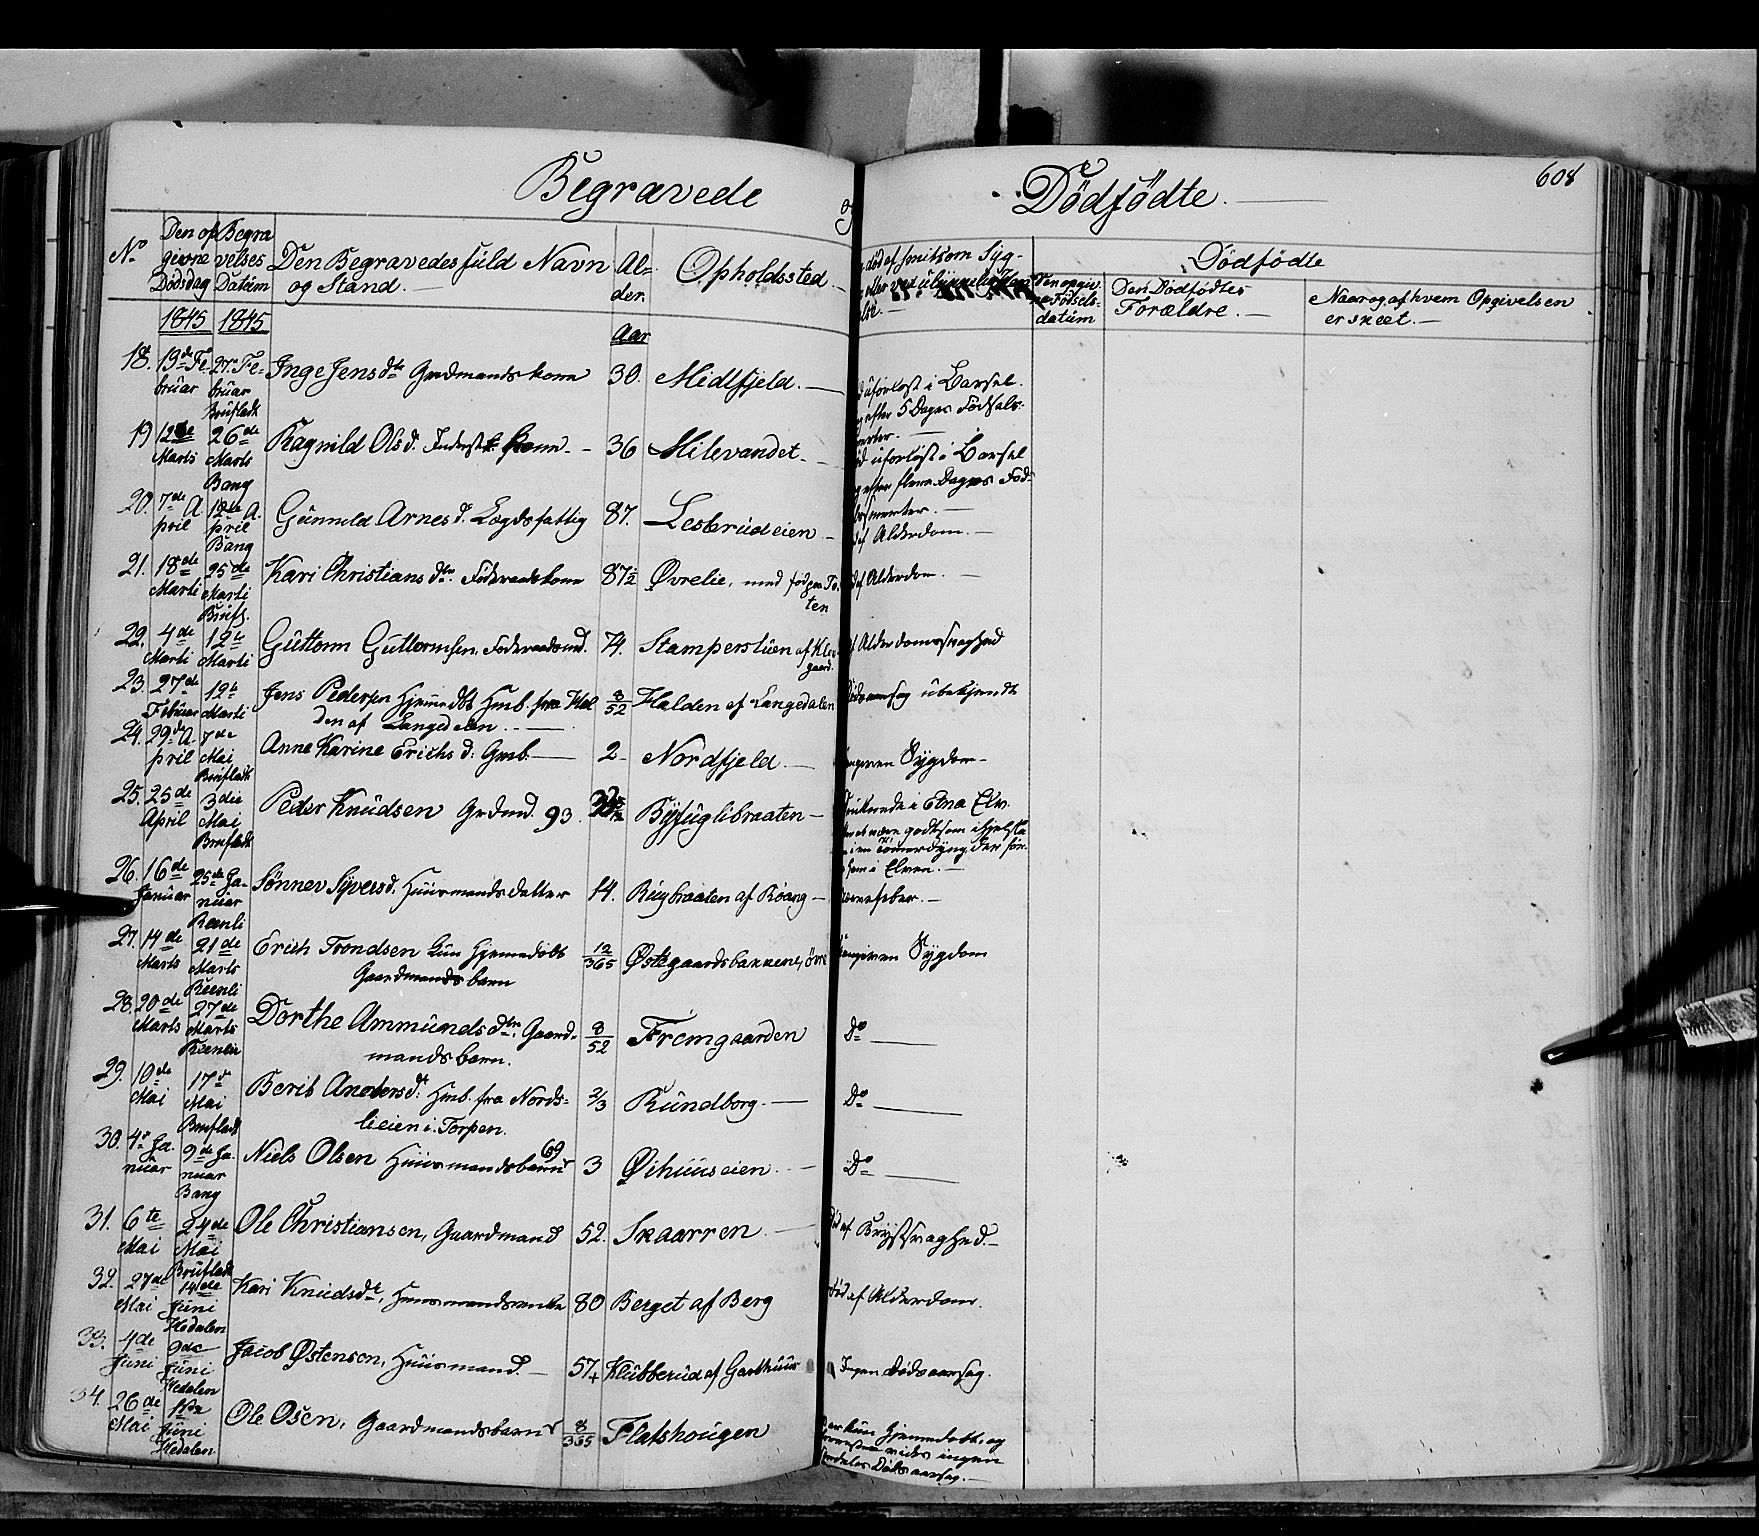 Begravede Dödfödte.
608
No Den opgivne Dödsdag Begravelses Datum Den Begravedes fuld Navn og Stand. Alder. Opholdssted
Dödfödte
Fødselsdatum Den Dödfödtes Forældre. Naar og af hvem Opgivelsen er skeet.
1845 1845 Aar
18. 19de Februar 27. Februar Brufladt Inge Jensdtr Grdmandskone 30. Midtfjeld.
uforløst i Barsel efter 5 Dages Fødsels-
19 Marts 26de Marts Bang Ragnild Olsd. Kone 36 Milevandet
uforløst i Barsel efter flere Dages Fød-
20. 7de April 12te April Bang Gunnild Arnesd. Lægdsfattig 87. Lesbrüdeien
af Alderdom.
21. 18de Marti 25de Marti Brufl. Kari Christiansdtr. Föderaadskone 87½ Øvrelie, med Toten
af Alderdom.
22. 4de Marti 12te Marti Guttorm Guttormsen, Föderaadsmd. 74. Stamperstüen af Klevgaard.
Alderdomssvaghed
23. 27de Februar 12te Marti Jens Pedersen Hjemmedöbt Hmb. fra Halden af Langedalen 8/52 Halden af Langedalen
Dödsaarsag ubekjendt
24. 29de April 7de Mai Brufladt Anne Karine Erichsd: Gmb. 2 Nordfjeld.
ingen Sygdom
25. 25de April 3die Mai Brufladt Peder Knudsen Grdmd. 93. Byfuglibraaten
i Etna Elv.
i Elven.
26. 16de Januar 25de Januar Reenli Sønnev Syversd. Huusmandsdatter 14. Rugbraaten af Röang
27. 14de Marts 21de Marts Reenli Erich Trondsen kun Hjemmedöbt Gaardmandsbarn 12/365 Østegaardsbakkene, övre
Sygdom
28. 20de Marts 27de Marts Reenli Dorthe Ammundsdtr. Gaardmandsbarn. 8/52 Fremgaarden
Do
29. 10de Mai 17de Mai Brufladt Berit Andersdt: Hmb. fra Nordslieien i Torpen. 2/3 Rundborg.
Do
30. 4de Januar 9de Januar Bang Niels Olsen Huusmandsbarn 69 3 Øihuuseien.
Do
31. 6te Mai 24de Mai Brufladt Ole Christiansen, Gaardmand 52. Skaarren
af Brystsvaghed.
32. 27de Mai 14de Juni Hedalen Kari Knudsdt, Huusmandsenke 80 Berget af Berg
Död af Alderdom.
33. 4de Juni 9de Juni Hedalen Jacob Østensen, Huusmand. 57 Klubberud af Garthuus
Ingen Dödsaarsag.
34. 26de Mai Juni Hedalen Ole Olsen, Gaardmandsbarn 8/365 Flatshougen
kun Hjemmedöbt, og
ingen
Dödsaarsag.